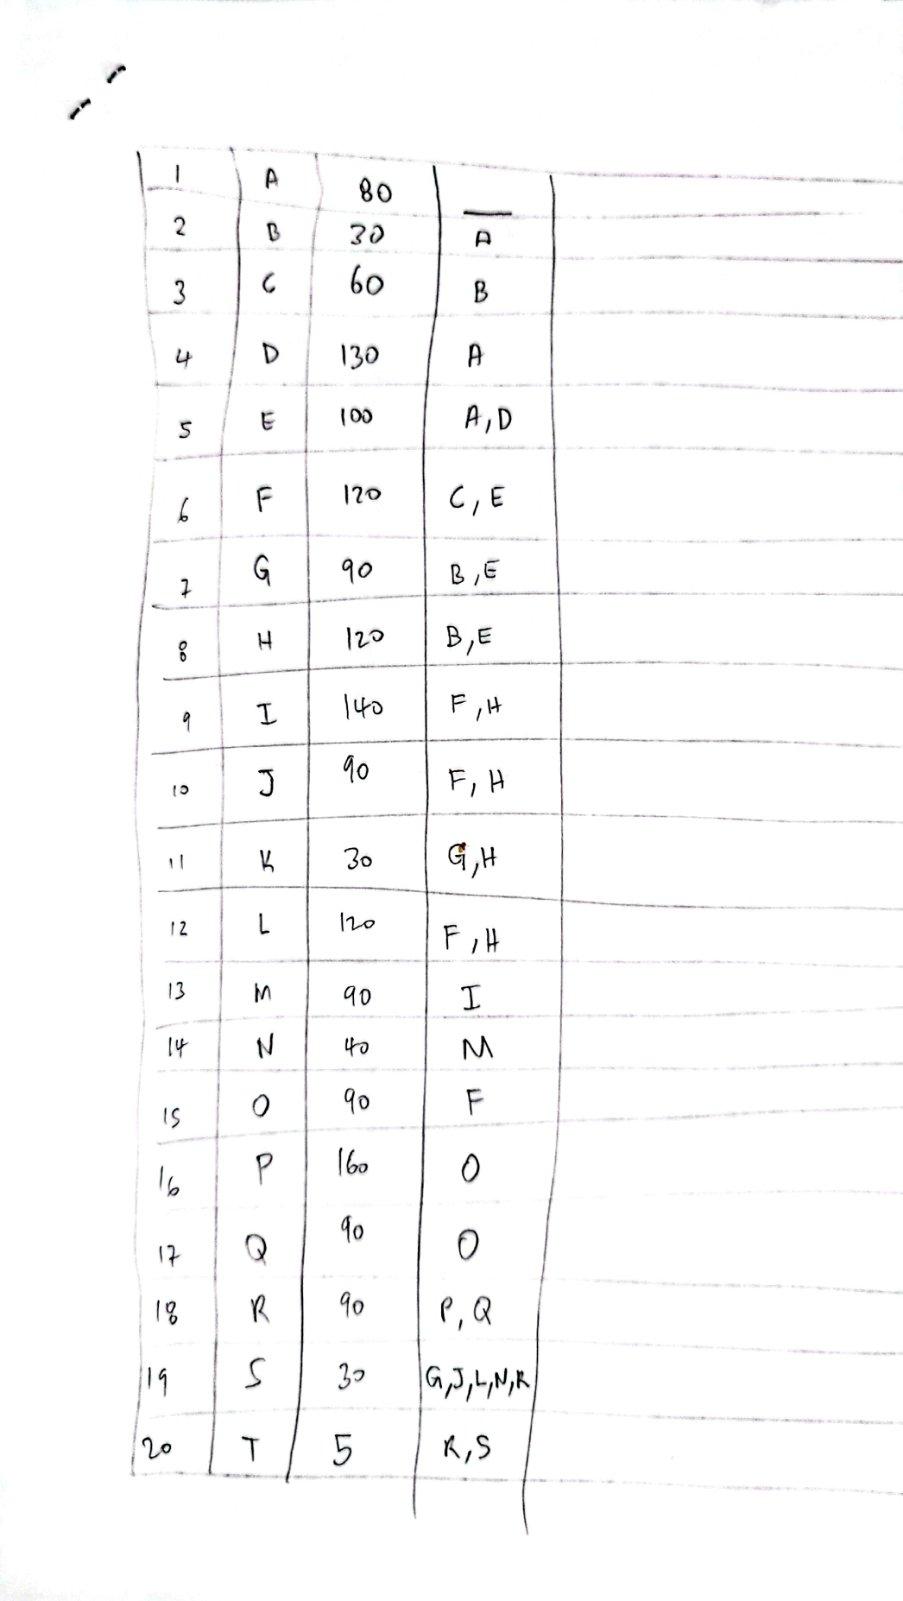 1 A 80 —
2 B 30 A
3 C 60 B
4 D 130 A
5 E 100 A,D
6 F 120 C,E
7 G 90 B,E
8 H 120 B,E
9 I 140 F,H
10 J 90 F,H
11 K 30 G,H
12 L 120 F,H
13 M 90 I
14 N 40 M
15 O 90 F
16 P 160 O
17 Q 90 O
18 R 90 P,Q
19 S 30 G,J,L,N,R
20 T 5 R,S